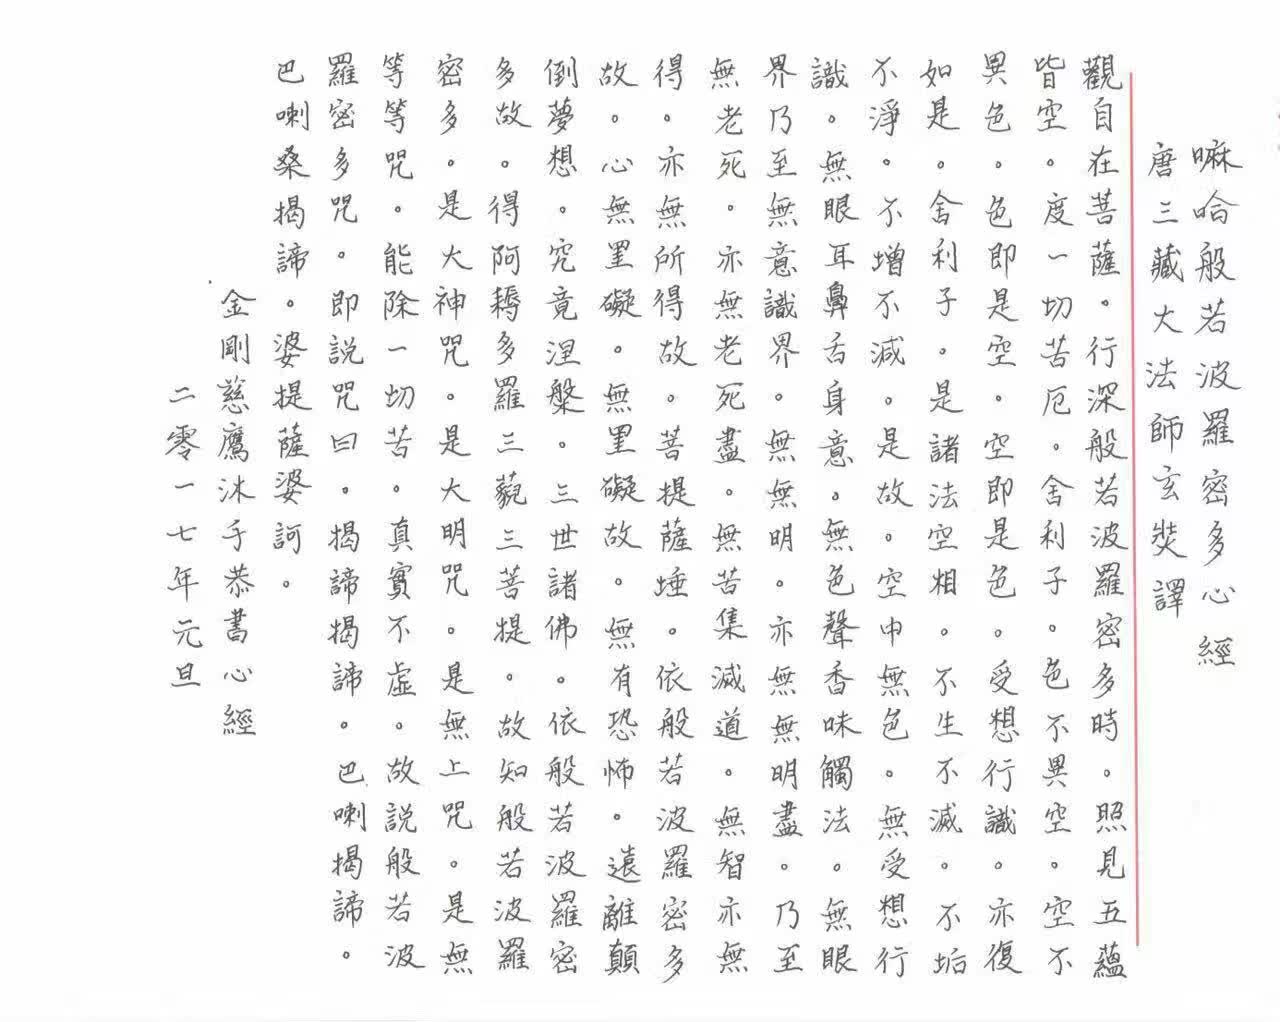 嘛哈般若波羅密多心經
唐三藏大法師玄奘譯
觀自在菩薩。行深般若波羅密多時。照見五蘊
皆空。度一切苦厄。舍利子。色不異空。空不
異色。色即是空。空即是色。受想行識。亦復
如是。舍利子。是諸法空相。不生不滅。不垢
不淨。不增不減。是故。空中無色。無受想行
識。無眼耳鼻舌身意。無色聲香味觸法。無眼
界乃至無意識界。無無明。亦無無明盡。乃至
無老死。亦無老死盡。無苦集滅道。無智亦無
得。亦無所得故。菩提薩埵。依般若波羅密多
故。心無罣礙。無罣礙故。無有恐怖。遠離顛
倒夢想。究竟涅槃。三世諸佛。依般若波羅密
多故。得阿耨多羅三藐三菩提。故知般若波羅
密多。是大神咒。是大明咒。是無上咒。是無
等等咒。能除一切苦。真實不虛。故説般若波
羅密多咒。即説咒曰。揭諦揭諦。巴喇揭諦。
巴喇桑揭諦。婆提薩婆訶。
金剛慈鷹沐手恭書心經
二零一七年元旦